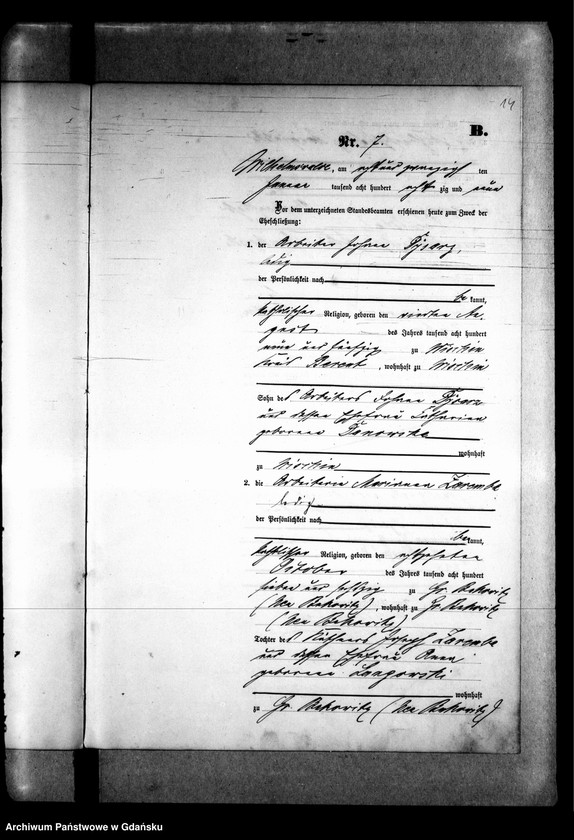 14
B.
Nr. 7.
am acht und zwanzigsten
Januar tausend acht hundert achtzig und neun
Vor dem unterzeichneten Standesbeamten erschienen heute zum Zweck der
Eheschließung:
1. der Arbeiter Johann
ledig
der Persönlichkeit nach
be kannt,
katholischer Religion, geboren den vierten Au-
gust des Jahres tausend acht hundert
neun und fünfzig zu
Kreis Berent, wohnhaft zu
Sohn des Arbeiters Johann
und dessen Ehefrau Catharina
geborene
wohnhaft
zu
2. die Arbeiterin Marianna Zaremba
ledig
der Persönlichkeit nach
be kannt,
katholischer Religion, geboren den achtzehnten
October des Jahres tausend acht hundert
sieben und sechzig zu Gr. Bukowitz
(Neu Bukowitz), wohnhaft zu Gr. Bukowitz
(Neu Bukowitz)
Tochter des Käthners Joseph Zaremba
und dessen Ehefrau Anna
geborene
wohnhaft
zu Gr. Bukowitz (Neu Bukowitz)
Archiwum Państwowe w Gdańsku